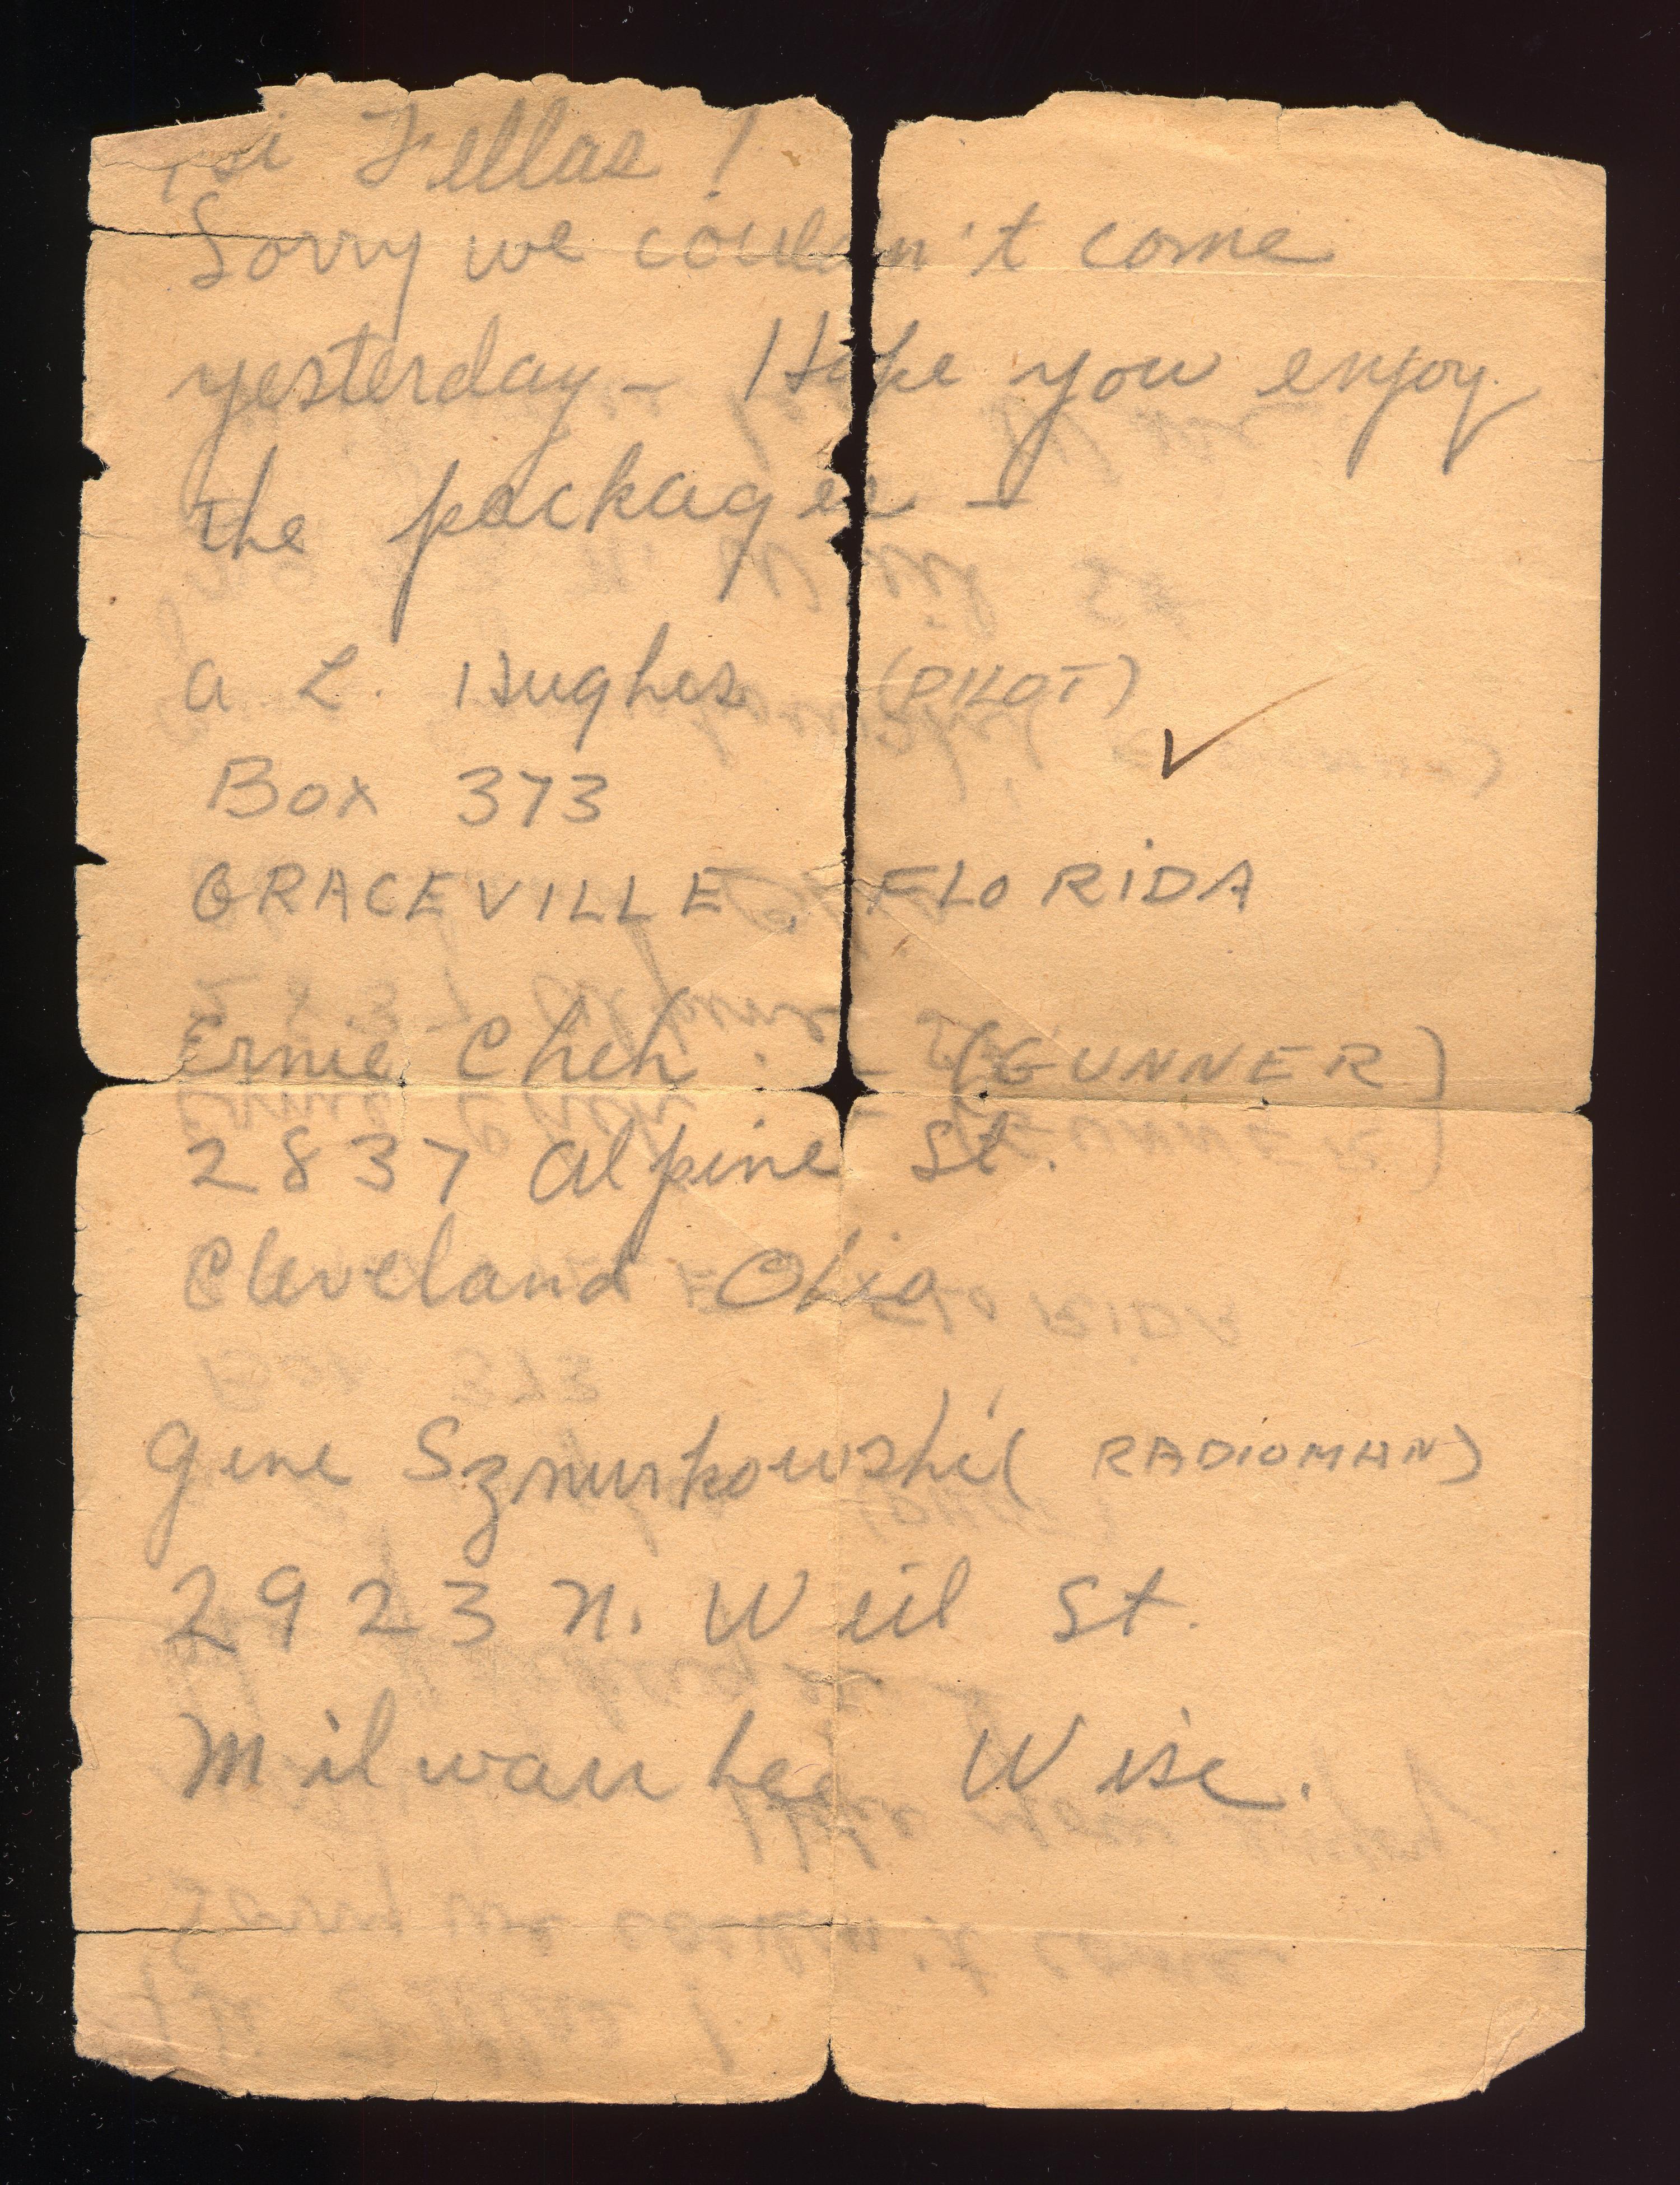 Hi Fellas!
Sorry we couldn't come
yesterday – Hope you enjoy
the packages –
A L. Hughes (PILOT)
Box 373
GRACEVILLE, FLORIDA
Ernie Cheh (GUNNER)
2837 Alpine St.
Cleveland Ohio
Gene Szmurkowski (RADIOMAN)
2923 N. Weil St.
Milwaukee Wisc.